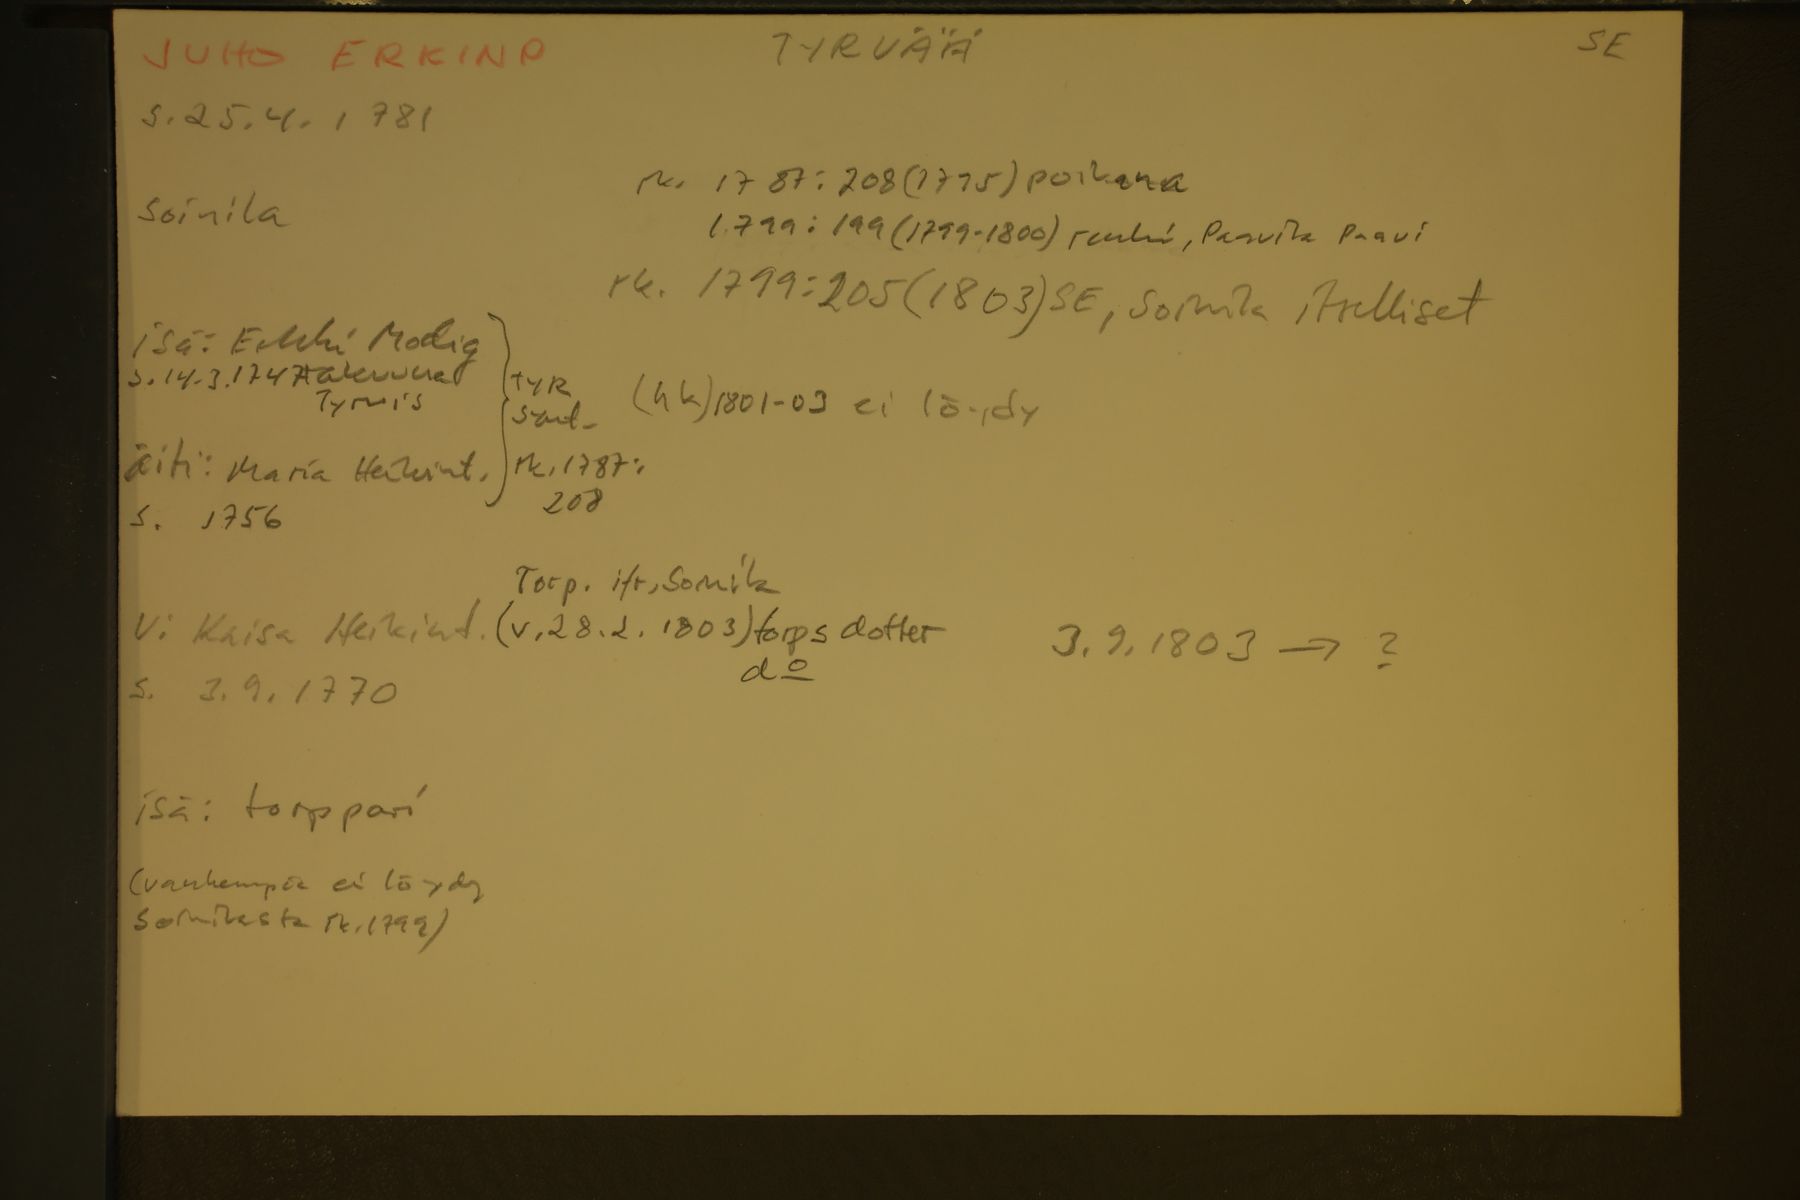 JUHO ERKINP
TYRVÄÄ
SE
s. 25.4. 1781
Soinila
rk. 1787: 208 (1795) poikana
1799: 199 (1799-1800) renki, Paavila Paavi
rk. 1799: 205 (1803) SE, Soinila itselliset
isä: Erkki Modig
s. 14.3.1747
Tyrvis
äiti: Maria Heikint.
s. 1756
TYR
synt.
rk. 1787:
208
(hk) 1801-03 ei löydy
Torp. ifr. Soinila
V: Kaisa Heikint. (v. 28.2. 1803) torps dotter
do
s. 3.9. 1770
3.9.1803 → ?
isä: torppari
(vanhempia ei löydy
Soinilasta rk. 1799)